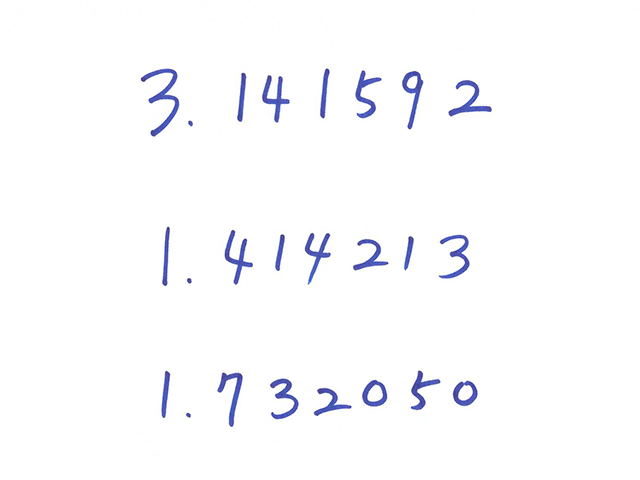 3.141592
1.414213
1.732050